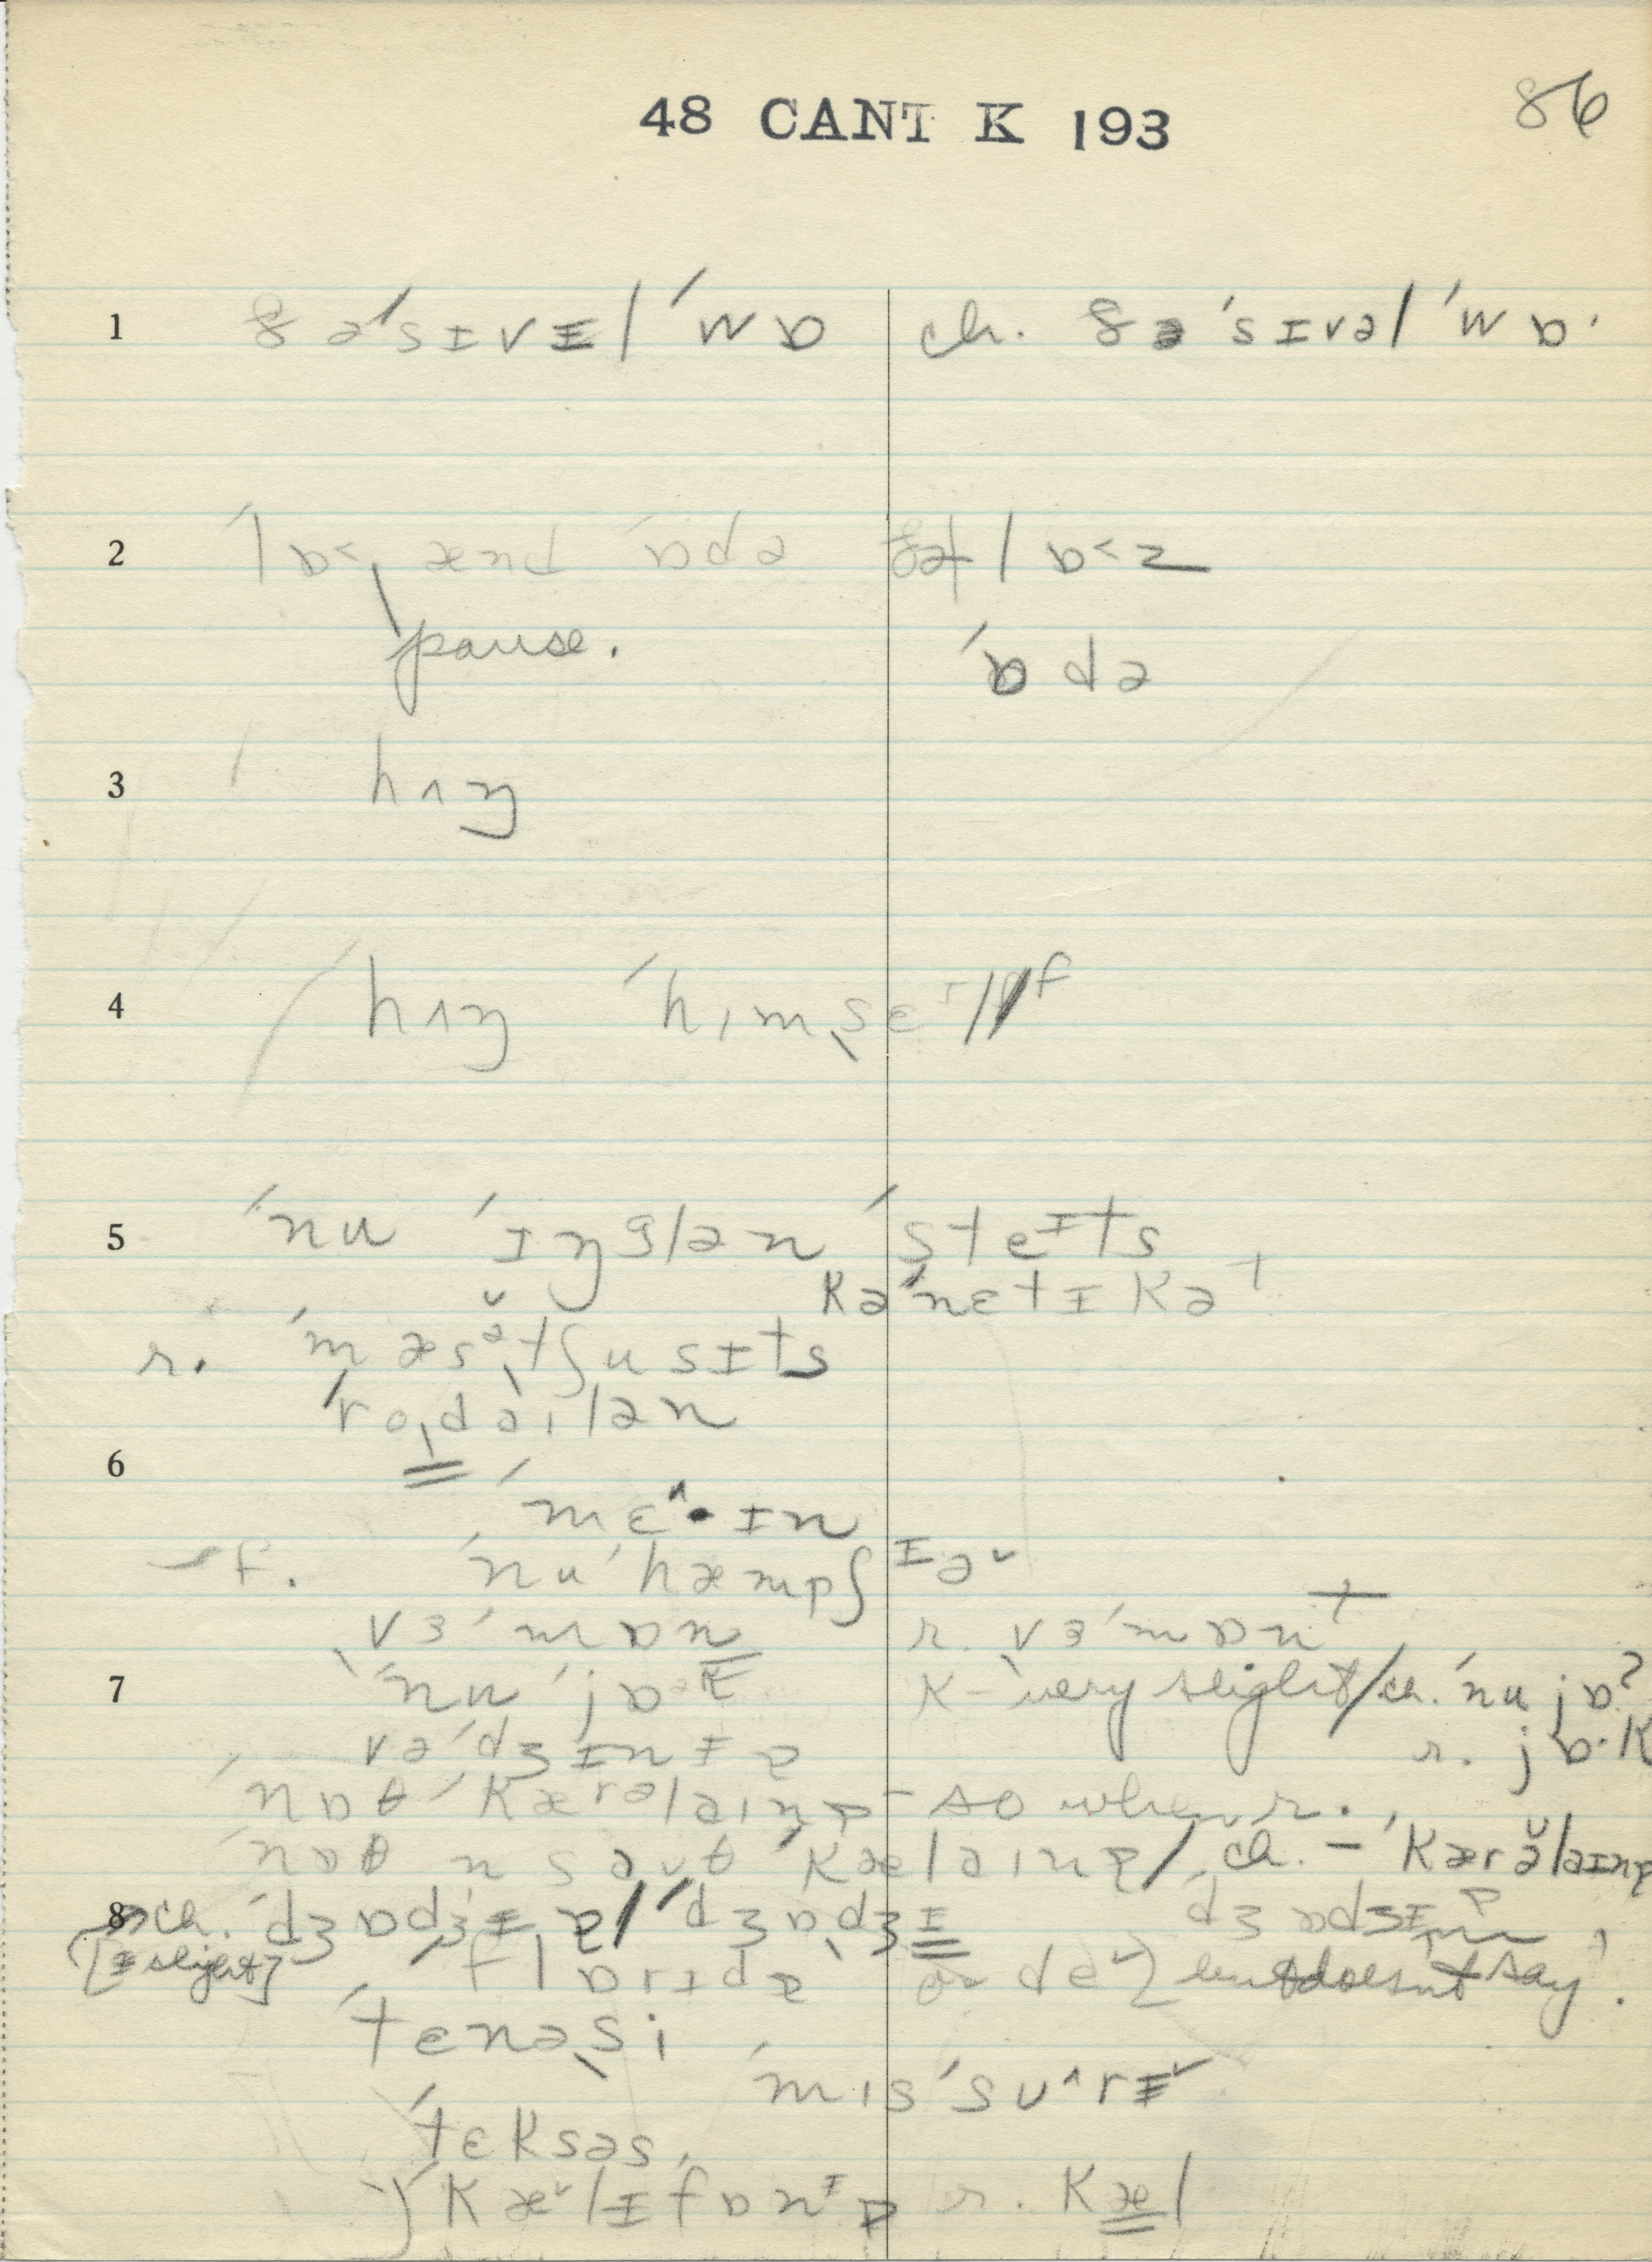 48 CANT K 193
86
1 ðə'sɪvɪl 'wɒ ch. ðə'sɪvəl 'wɒ·
2 'lɒ< ænd 'ɒdə lɒ<z
pause. 'ɒdə
3 hʌŋ
4 hʌŋ 'hɪmˌsɛlf
5 'nu 'ɪŋglən 'steɪts
kə'nɛtɪkət
r. 'mæsəˌtʃusɪts
'roˌdaɪlən
6
'mɛ^·ɪn
f. 'nu 'hæmpʃɪə˅
vɜ'mɒn r. vɜ'mɒnt
7 'nu 'jɒ·k k - very slight / ch. 'nu jɒ?
r. jɒ·k
və'dʒɪnɪɐ
'nɒθ 'kærəlaɪnɐ - so when r.
'nɒθ n saʊθ 'kælaɪnɐ / ch. - 'kærə̆laɪnɐ
8 ch. 'dʒɒdʒɪɐ / 'dʒɒdʒɪ
[ɪ slight] 'flɒrɪdɐ or de˅ but doesn't say.
'tɛnəˌsi
'mɪs'sʊ^rɪ˅
'tɛksəs
'kæ˅lɪfɒnɪɐ r. kæl